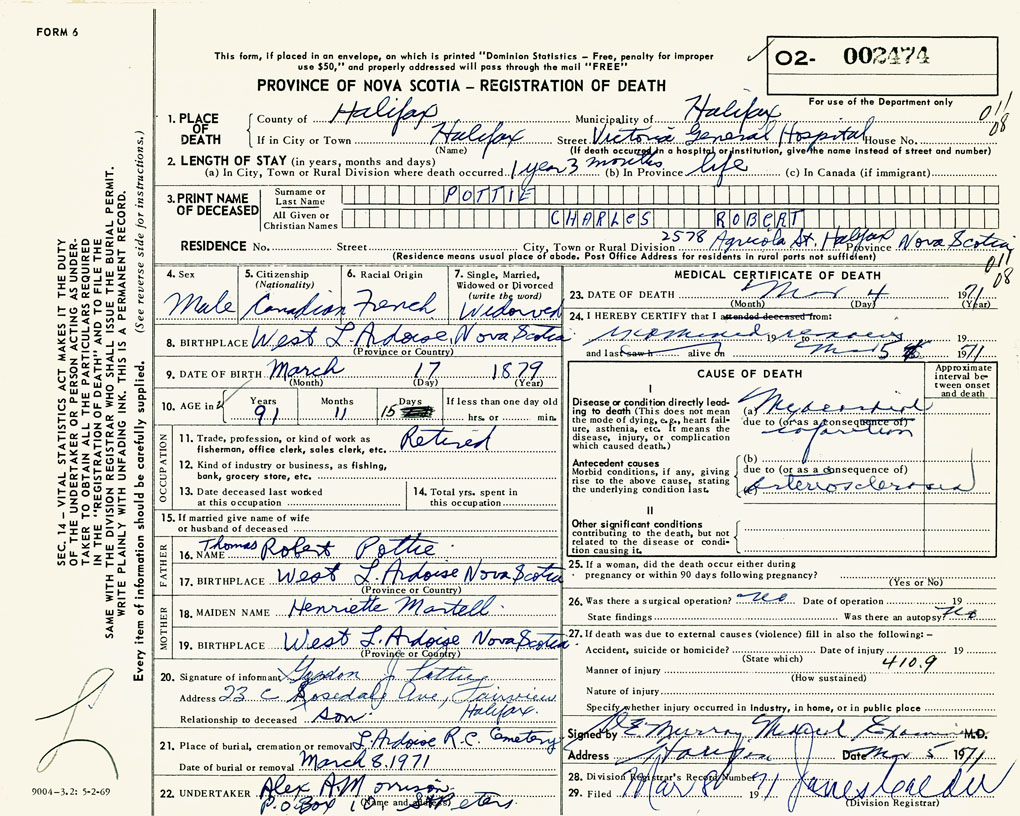 FORM 6
This form, if placed in an envelope, on which is printed "Dominion Statistics – Free, penalty for improper
use $50," and properly addressed will pass through the mail "FREE"
O2- 002474
For use of the Department only
PROVINCE OF NOVA SCOTIA – REGISTRATION OF DEATH
011
08
1. PLACE OF DEATH
County of Halifax Municipality of Halifax
If in City or Town Halifax Street Victoria General Hospital House No.
(Name) (If death occurred in a hospital or institution, give the name instead of street and number)
2. LENGTH OF STAY (in years, months and days)
(a) In City, Town or Rural Division where death occurred 1 year 3 months (b) In Province life (c) In Canada (if immigrant)
3. PRINT NAME OF DECEASED
Surname or Last Name POTTIE
All Given or Christian Names CHARLES ROBERT
RESIDENCE No. Street City, Town or Rural Division 2578 Agricola St, Halifax Province Nova Scotia
(Residence means usual place of abode. Post Office Address for residents in rural parts not sufficient)
011
08
4. Sex
Male
5. Citizenship
(Nationality)
Canadian
6. Racial Origin
French
7. Single, Married,
Widowed or Divorced
(write the word)
Widowed
8. BIRTHPLACE West L'Ardoise, Nova Scotia
(Province or Country)
9. DATE OF BIRTH March 17 1879
(Month) (Day) (Year)
10. AGE in Years Months Days If less than one day old
91 11 15 hrs. or min.
OCCUPATION
11. Trade, profession, or kind of work as
fisherman, office clerk, sales clerk, etc. Retired
12. Kind of industry or business, as fishing,
bank, grocery store, etc.
13. Date deceased last worked
at this occupation
14. Total yrs. spent in
this occupation
15. If married give name of wife
or husband of deceased
FATHER
16. NAME Thomas Robert Pottie
17. BIRTHPLACE West L'Ardoise Nova Scotia
(Province or Country)
MOTHER
18. MAIDEN NAME Henriette Martell
19. BIRTHPLACE West L'Ardoise Nova Scotia
(Province or Country)
20. Signature of informant J Pottie
Address 23 C Rosedale Ave, Fairview
Halifax.
Relationship to deceased Son
21. Place of burial, cremation or removal L'Ardoise R.C. Cemetery
Date of burial or removal March 8, 1971
22. UNDERTAKER Alex A Morrison
(Name and address)
P.O Box St Peters
MEDICAL CERTIFICATE OF DEATH
23. DATE OF DEATH Mar 4 1971
(Month) (Day) (Year)
24. I HEREBY CERTIFY that I attended deceased from:
examined remains 19 to
and last saw h alive on Mar 5 1971
CAUSE OF DEATH
Approximate
interval be-
tween onset
and death
I
Disease or condition directly lead-
ing to death (This does not mean
the mode of dying, e.g., heart fail-
ure, asthenia, etc. It means the
disease, injury, or complication
which caused death.)
(a) Myocardial
due to (or as a consequence of)
infarction
Antecedent causes
Morbid conditions, if any, giving
rise to the above cause, stating
the underlying condition last.
(b)
due to (or as a consequence of)
(c) Arteriosclerosis
II
Other significant conditions
contributing to the death, but not
related to the disease or condi-
tion causing it.
25. If a woman, did the death occur either during
pregnancy or within 90 days following pregnancy?
(Yes or No)
26. Was there a surgical operation? no Date of operation 19
State findings Was there an autopsy? No
27. If death was due to external causes (violence) fill in also the following: –
Accident, suicide or homicide? Date of injury 19
(State which) 410.9
Manner of injury
(How sustained)
Nature of injury
Specify whether injury occurred in industry, in home, or in public place
Signed by Murray, Medical Examiner M.D.
Address Halifax Date Mar 5 1971
28. Division Registrar's Record Number
29. Filed Mar 8 1971 James Calder
(Division Registrar)
SEC. 14 – VITAL STATISTICS ACT MAKES IT THE DUTY
OF THE UNDERTAKER OR PERSON ACTING AS UNDER-
TAKER TO OBTAIN ALL THE PARTICULARS REQUIRED
IN THE "REGISTRATION OF DEATH" AND TO FILE THE
SAME WITH THE DIVISION REGISTRAR WHO SHALL ISSUE THE BURIAL PERMIT.
WRITE PLAINLY WITH UNFADING INK. THIS IS A PERMANENT RECORD.
Every item of information should be carefully supplied. (See reverse side for instructions.)
9004-3.2: 5-2-69